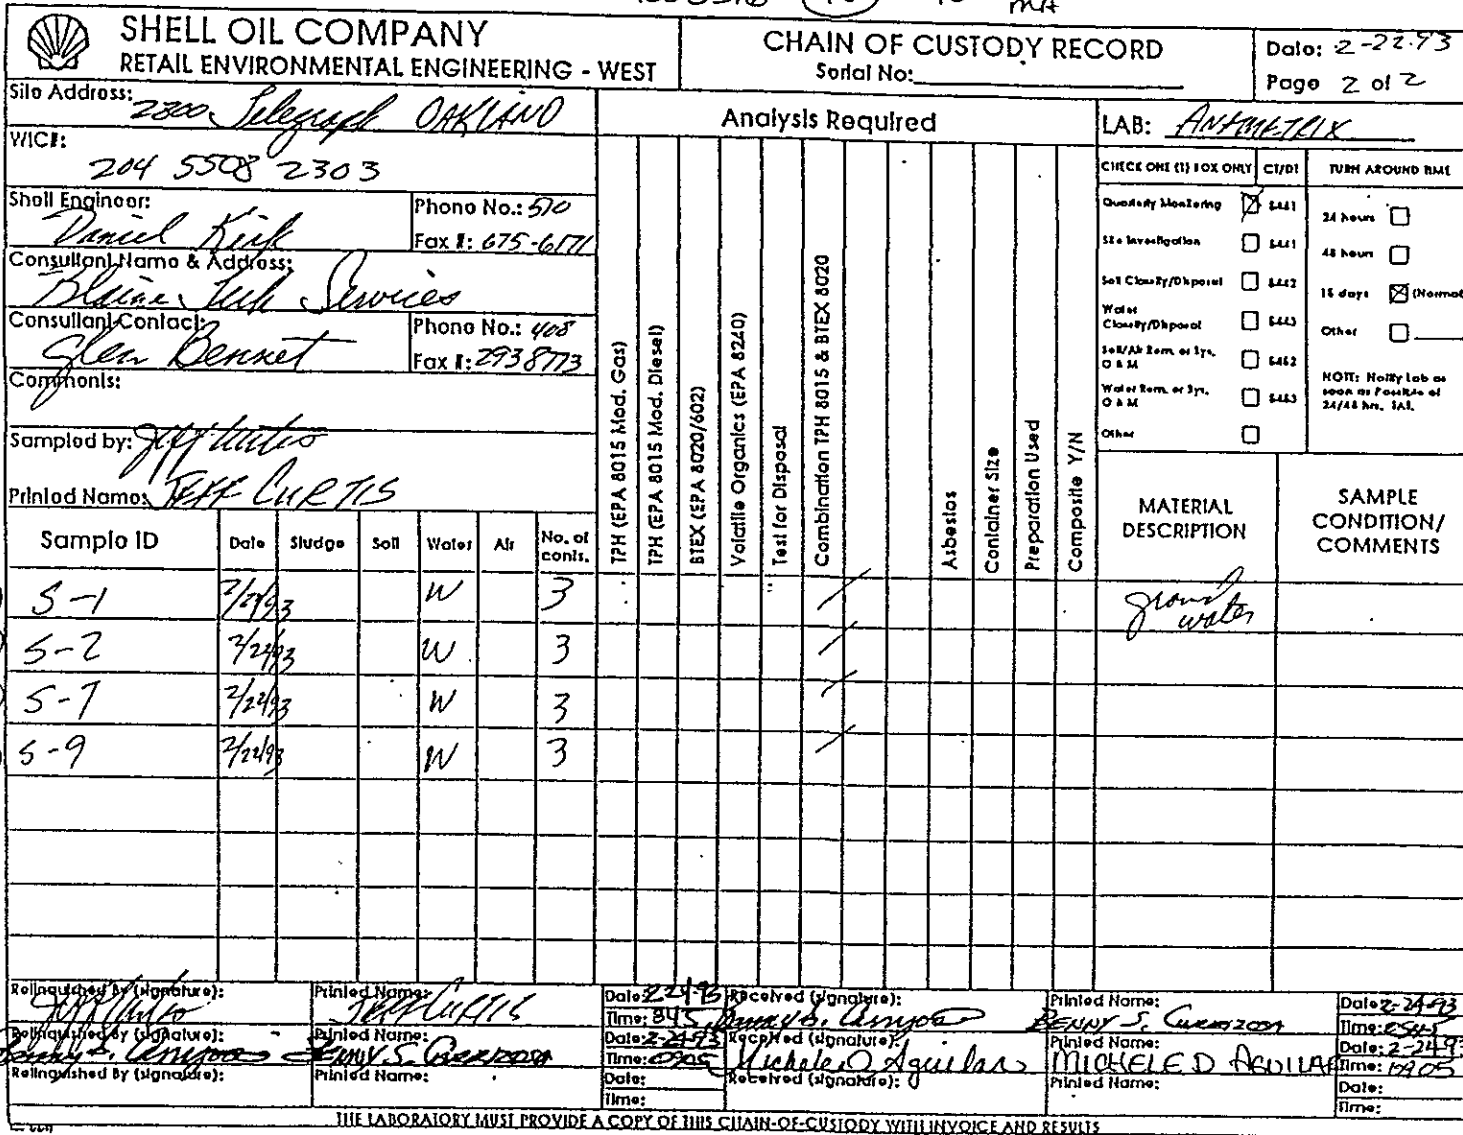 MA
SHELL OIL COMPANY
RETAIL ENVIRONMENTAL ENGINEERING - WEST
CHAIN OF CUSTODY RECORD
Serial No:
Date: 2-22-93
Page 2 of 2
Site Address: 2800 Telegraph OAKLAND
WIC#: 204 5508 2303
Shell Engineer: Daniel Kirk
Phone No.: 510
Fax #: 675-6171
Consultant Name & Address: Blaine Tech Services
Consultant Contact: Glen Bennet
Phone No.: 408
Fax #: 2938773
Comments:
Sampled by: Jeff Curtis
Printed Name: JEFF CURTIS
Analysis Required
LAB: ANAMETRIX
CHECK ONE (1) BOX ONLY CT/DT TURN AROUND TIME
Quarterly Monitoring 5441
Site Investigation 5441
Soil Classify/Disposal 5442
Water Classify/Disposal 5443
Soil/Air Rem. or Sys. O & M 5452
Water Rem. or Sys. O & M 5453
Other
24 hours
48 hours
15 days (Normal)
Other
NOTE: Notify Lab as soon as Possible of 24/48 hrs. TAT.
TPH (EPA 8015 Mod. Gas)
TPH (EPA 8015 Mod. Diesel)
BTEX (EPA 8020/602)
Volatile Organics (EPA 8240)
Test for Disposal
Combination TPH 8015 & BTEX 8020
Asbestos
Container Size
Preparation Used
Composite Y/N
MATERIAL DESCRIPTION
SAMPLE CONDITION/ COMMENTS
Sample ID Date Sludge Soil Water Air No. of conts.
S-1 2/22/93 W 3 ground water
S-2 2/22/93 W 3
S-7 2/22/93 W 3
S-9 2/22/93 W 3
Relinquished By (signature): Jeff Curtis Printed Name: JEFF CURTIS Date: 2-24-93 Time: 845 Received (signature): Printed Name: BENNY S. Date: 2-24-93 Time: 0845
Relinquished By (signature): Printed Name: BENNY S. Date: 2-24-93 Time: 0905 Received (signature): Michele D Aguilar Printed Name: MICHELE D AGUILAR Date: 2-24-93 Time: 0905
Relinquished By (signature): Printed Name: Date: Time: Received (signature): Printed Name: Date: Time:
THE LABORATORY MUST PROVIDE A COPY OF THIS CHAIN-OF-CUSTODY WITH INVOICE AND RESULTS